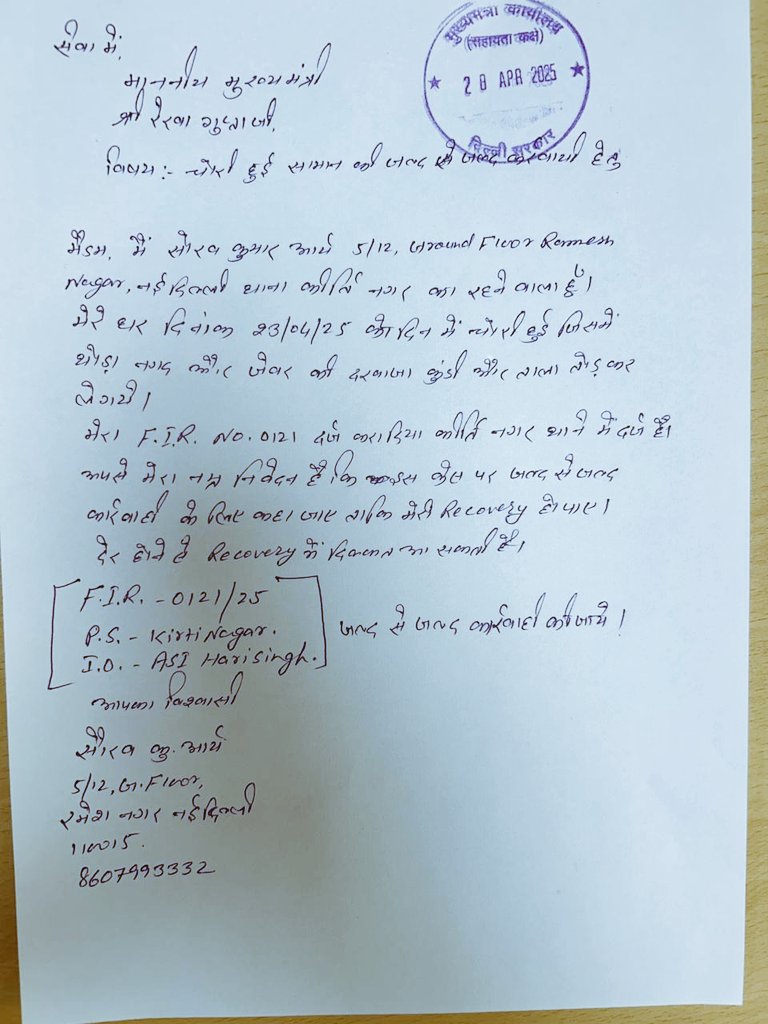 मुख्यमंत्री कार्यालय
(सहायता कक्ष)
★ 28 APR 2025 ★
दिल्ली सरकार
सेवा में,
माननीय मुख्यमंत्री
श्री रेखा गुप्ता जी,
विषय:- चोरी हुई सामान की जल्द से जल्द करवायी हेतु
मैडम, मैं सौरव कुमार आर्य 5/12, Ground Floor Ramesh
Nagar, नई दिल्ली थाना कीर्ति नगर का रहने वाला हूँ।
मेरे घर दिनांक 23/04/25 को दिन में चोरी हुई जिसमें
थोड़ा नगद और जेवर की दरवाजा कुंडी और ताला तोड़ कर
ले गये।
मेरा F.I.R. NO. 0121 दर्ज करा दिया कीर्ति नगर थाने में दर्ज है।
आपसे मेरा नम्र निवेदन है कि इस केस पर जल्द से जल्द
कार्रवाही के लिए कहा जाए ताकि मेरी Recovery हो पाए।
देर होने से Recovery में दिक्कत आ सकती है।
F.I.R. - 0121/25
P.S. - Kirti Nagar.
I.O. - ASI Hari singh.
जल्द से जल्द कार्रवाही की जाये।
आपका विश्वासी
सौरव कु. आर्य
5/12, G. Floor,
रमेश नगर नई दिल्ली
110015.
8607993332